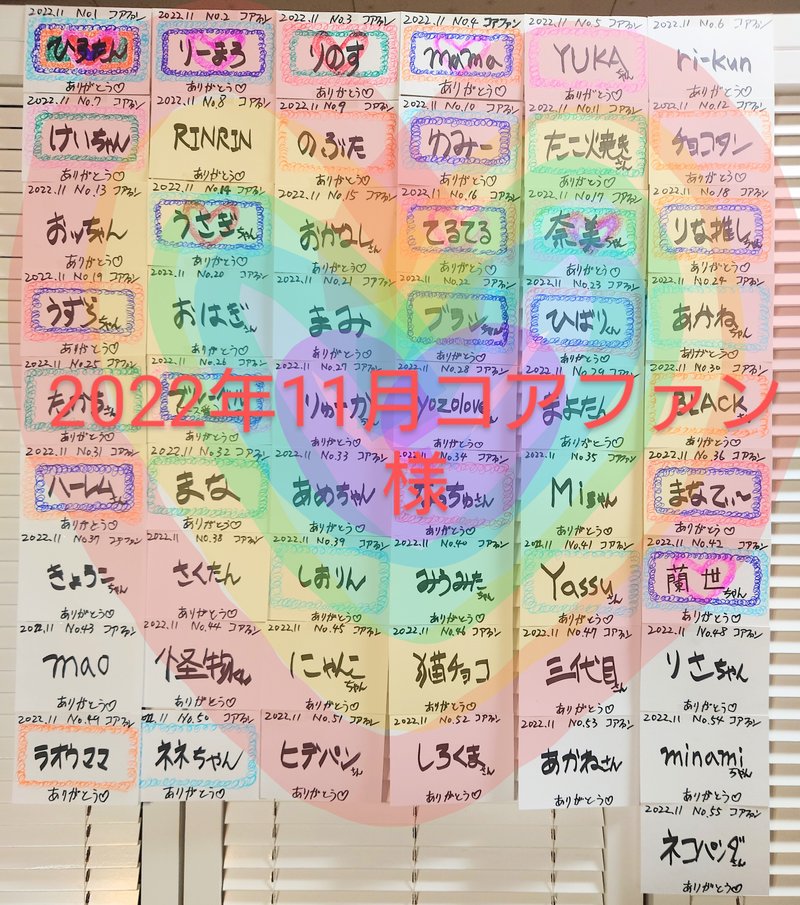 2022.11 No.1 コアファン
ひろたん
ありがとう♡
2022.11 No.2 コアファン
りーまろ
ありがとう♡
2022.11 No.3 コアファン
りのす
ありがとう♡
2022.11 No.4 コアファン
mama
ありがとう♡
2022.11 No.5 コアファン
YUKAちゃん
ありがとう♡
2022.11 No.6 コアファン
ri-kun
ありがとう♡
2022.11 No.7 コアファン
けいちゃん
ありがとう♡
2022.11 No.8 コアファン
RINRIN
ありがとう♡
2022.11 No.9 コアファン
のぶた
ありがとう♡
2022.11 No.10 コアファン
ゆみー
ありがとう♡
2022.11 No.11 コアファン
たこ焼きさん
ありがとう♡
2022.11 No.12 コアファン
チョコタン
ありがとう♡
2022.11 No.13 コアファン
おッちゃん
ありがとう♡
2022.11 No.14 コアファン
うさぎちゃん
ありがとう♡
2022.11 No.15 コアファン
おかなしさん
ありがとう♡
2022.11 No.16 コアファン
てるてる
ありがとう♡
2022.11 No.17 コアファン
奈美ちゃん
ありがとう♡
2022.11 No.18 コアファン
りな推しちゃん
ありがとう♡
2022.11 No.19 コアファン
うずらちゃん
ありがとう♡
2022.11 No.20 コアファン
おはぎさん
ありがとう♡
2022.11 No.21 コアファン
まみ
ありがとう♡
2022.11 No.22 コアファン
ブラッ
ありがとう♡
2022.11 No.23 コアファン
ひばりくん
ありがとう♡
2022.11 No.24 コアファン
あかねちゃん
ありがとう♡
2022.11 No.25 コアファン
ありがとう♡
2022.11 No.26 コアファン
ありがとう♡
2022.11 No.27 コアファン
りゅーか
ありがとう♡
2022.11 No.28 コアファン
yozolove
ありがとう♡
2022.11 No.29 コアファン
まよたん
ありがとう♡
2022.11 No.30 コアファン
BLACKさん
ありがとう♡
2022年11月コアファン
様
2022.11 No.31 コアファン
ハーレムさん
ありがとう♡
2022.11 No.32 コアファン
まな
ありがとう♡
2022.11 No.33 コアファン
あめちゃん
ありがとう♡
2022.11 No.34 コアファン
ちゅさん
ありがとう♡
2022.11 No.35 コアファン
Miちゃん
ありがとう♡
2022.11 No.36 コアファン
まなてぃ〜
ありがとう♡
2022.11 No.37 コアファン
きょうこちゃん
ありがとう♡
2022.11 No.38 コアファン
さくたん
ありがとう♡
2022.11 No.39 コアファン
しおりん
ありがとう♡
2022.11 No.40 コアファン
みうみたちゃん
ありがとう♡
2022.11 No.41 コアファン
Yassuさん
ありがとう♡
2022.11 No.42 コアファン
蘭世ちゃん
ありがとう♡
2022.11 No.43 コアファン
mao
ありがとう♡
2022.11 No.44 コアファン
小怪物くん
ありがとう♡
2022.11 No.45 コアファン
にゃんこちゃん
ありがとう♡
2022.11 No.46 コアファン
猫チョコ
ありがとう♡
2022.11 No.47 コアファン
三代目さん
ありがとう♡
2022.11 No.48 コアファン
りさちゃん
ありがとう♡
2022.11 No.49 コアファン
ラオウママ
ありがとう♡
2022.11 No.50 コアファン
ネネちゃん
ありがとう♡
2022.11 No.51 コアファン
ヒデパンさん
ありがとう♡
2022.11 No.52 コアファン
しろくまさん
ありがとう♡
2022.11 No.53 コアファン
あかねさん
ありがとう♡
2022.11 No.54 コアファン
minamiちゃん
ありがとう♡
2022.11 No.55 コアファン
ネコパンダさん
ありがとう♡